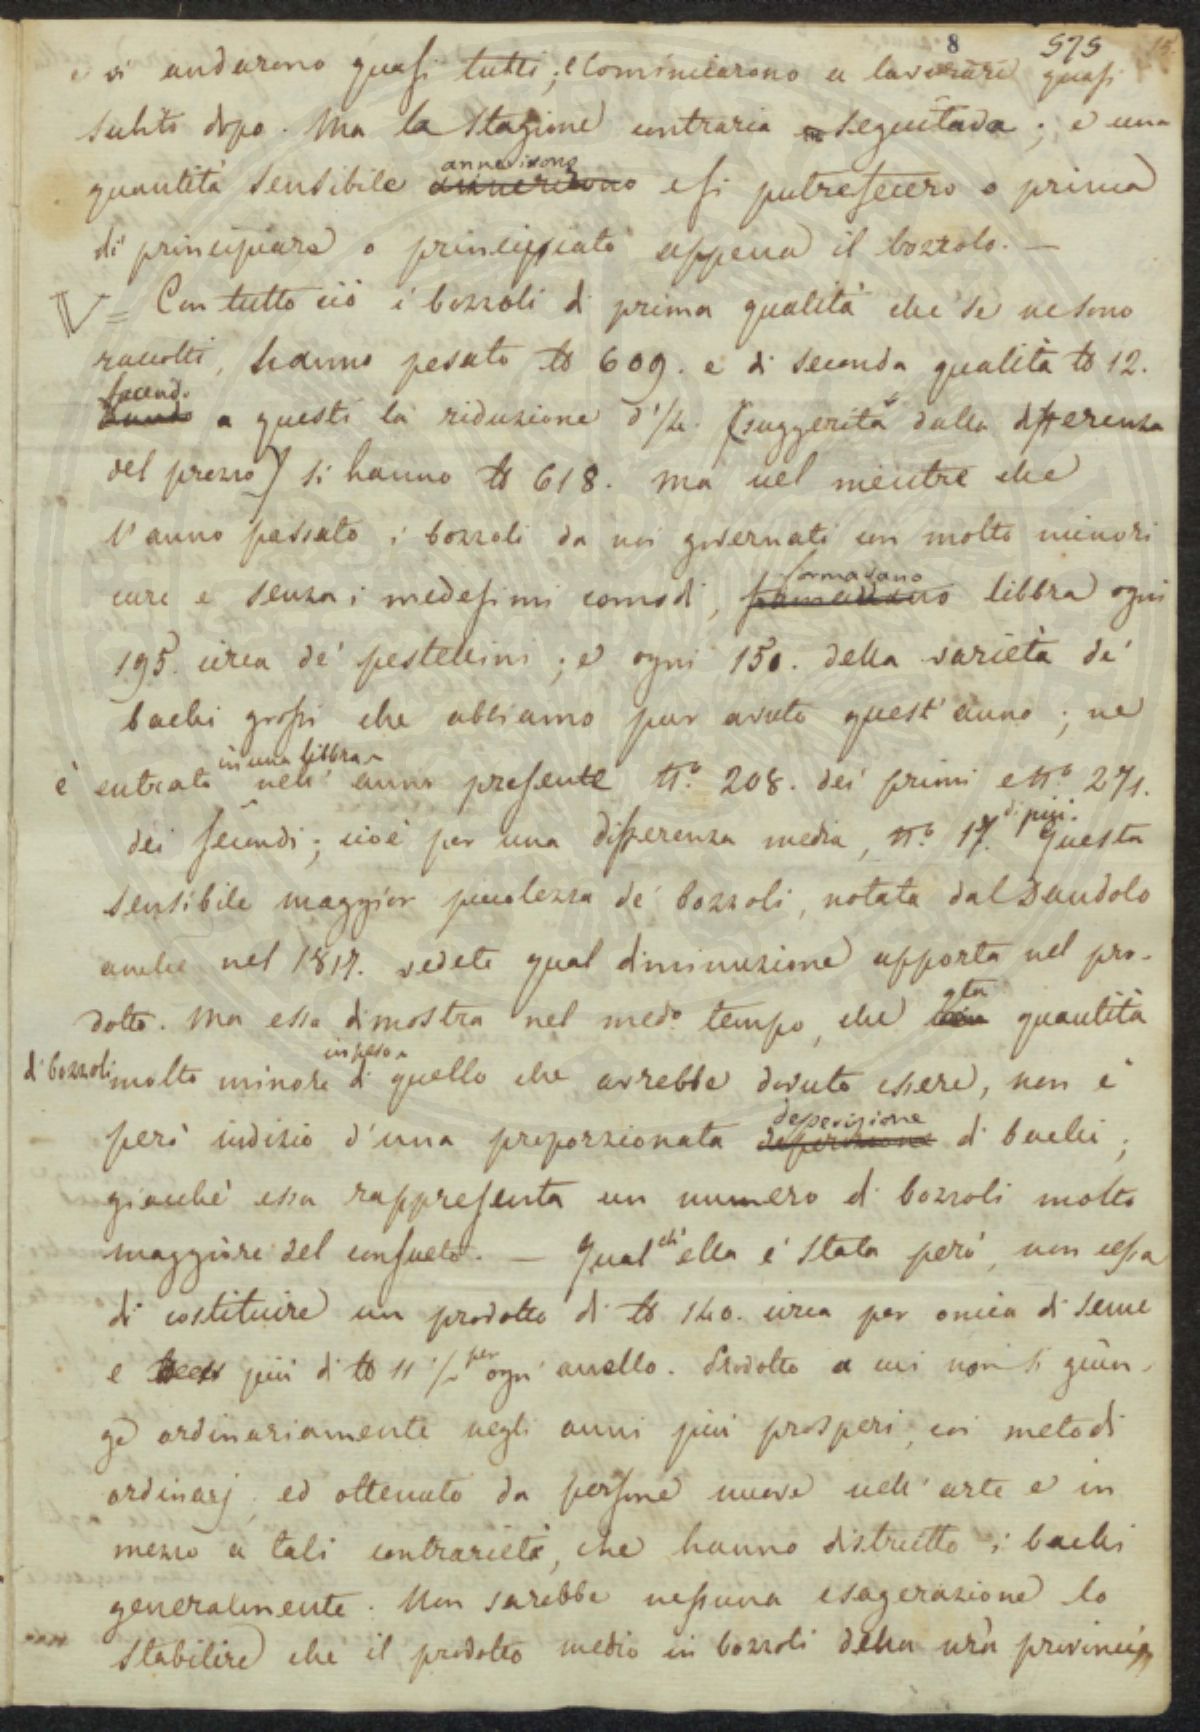 8 575 15.
e vi andarono quasi tutti; e cominciarono a lavorare quasi
subito dopo. Ma la Stagione contraria seguitava; e una
annerirono
quantità sensibile annerirono e si putrefecero o prima
di principiare o principiato appena il bozzolo. —
V = Con tutto ciò i bozzoli di prima qualità che se ne sono
raccolti, hanno pesato ℔ 609. e di seconda qualità ℔ 12.
facend.
a questi la riduzione d' 1/4. (suggerita dalla differenza
del prezzo) si hanno ℔ 618. Ma nel mentre che
l'anno passato i bozzoli da noi governati con molto minori
formavano
cure e senza i medesimi comodi, formavano libbra ogni
195. circa de' pestellini; e ogni 150. della varietà de'
bachi grossi che abbiamo pur avuto quest'anno; ne
in una libbra
è entrato nell' anno presente N.º 208. dei primi e N.º 271.
di più.
dei secondi; cioè per una differenza media, N.º 17. Questa
sensibile maggior piccolezza de' bozzoli, notata dal Dandolo
anche nel 1817. vedete qual diminuzione apporta nel pro-
sta
dotto. Ma essa dimostra nel medº tempo, che quantità
in peso
di bozzoli molto minore di quello che avrebbe dovuto essere, non è
deperizione
però indizio d'una proporzionata deperizione di bachi;
giacché essa rappresenta un numero di bozzoli molto
maggiore del consueto. — Qual ch' ella è stata però, non cessa
di costituire un prodotto di ℔ 140. circa per oncia di seme
per
e più di ℔ 11 1/2 ogni anello. Prodotto a cui non si giun-
ge ordinariamente negli anni più prosperi, coi metodi
ordinarj, ed ottenuto da persone nuove nell' arte e in
mezzo a tali contrarietà, che hanno distrutto i bachi
generalmente. Non sarebbe nessuna esagerazione lo
stabilire che il prodotto medio in bozzoli della nrà provincia